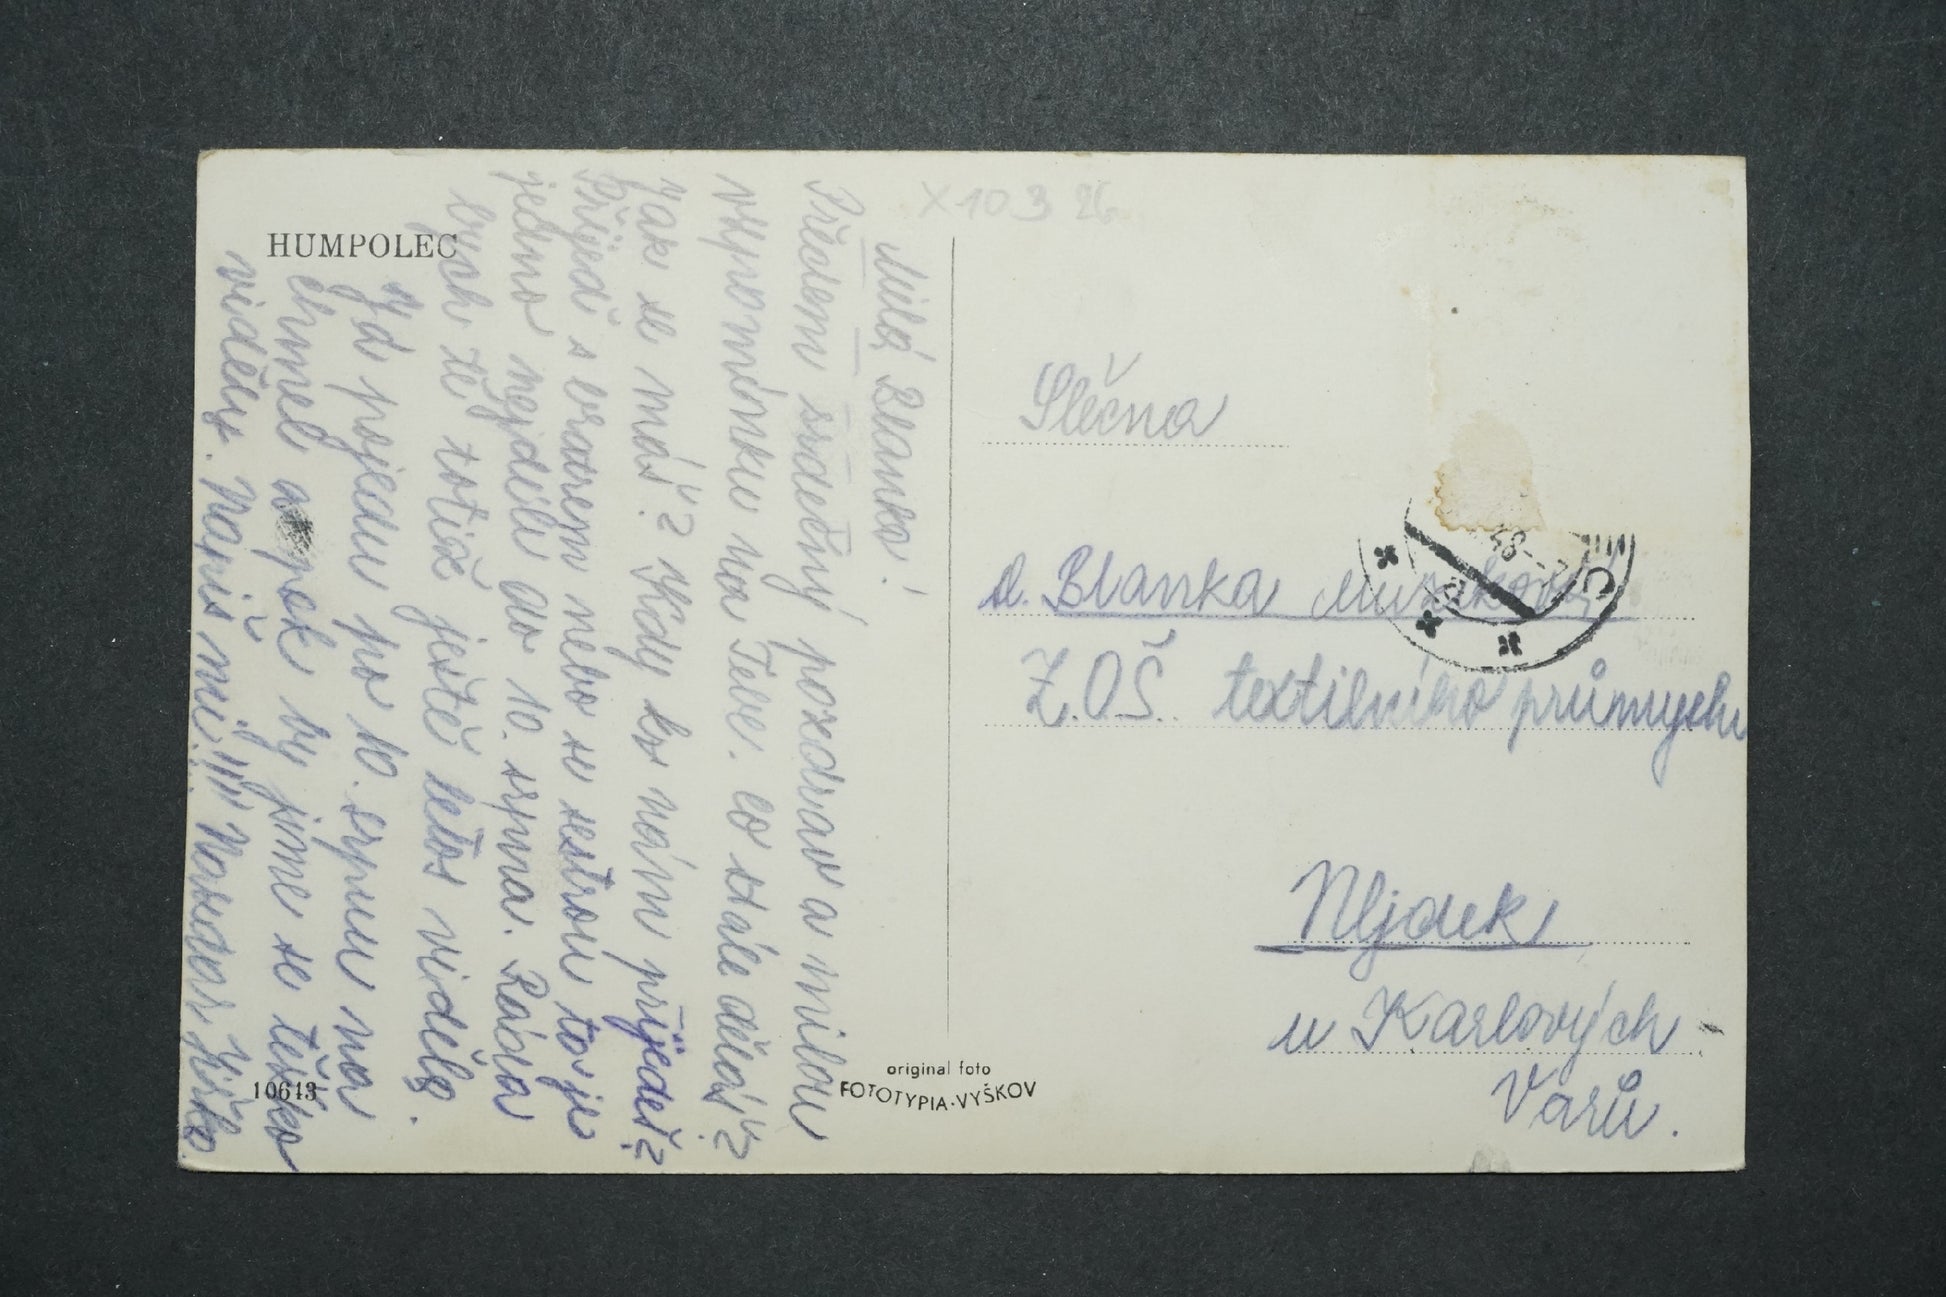 HUMPOLEC
X 10 3 26
Milá Blanko!
Předem srdečný pozdrav a milou
vzpomínku na Tebe. Co stále děláš?
Jak se máš? Kdy k nám přijedeš?
Přijeď s bratrem nebo se sestrou to je
jedno nejdéle do 10. srpna. Ráda
bych tě totiž ještě letos viděla.
Já pojedu po 10. srpnu na
chmel a pak by jsme se těžko
viděly. Napiš mi!!! Nazdar
10643
original foto
FOTOTYPIA-VYŠKOV
Slečna
sl. Blanka
Z.OŠ. textilního průmyslu
Nejdek
u Karlových
Varů.